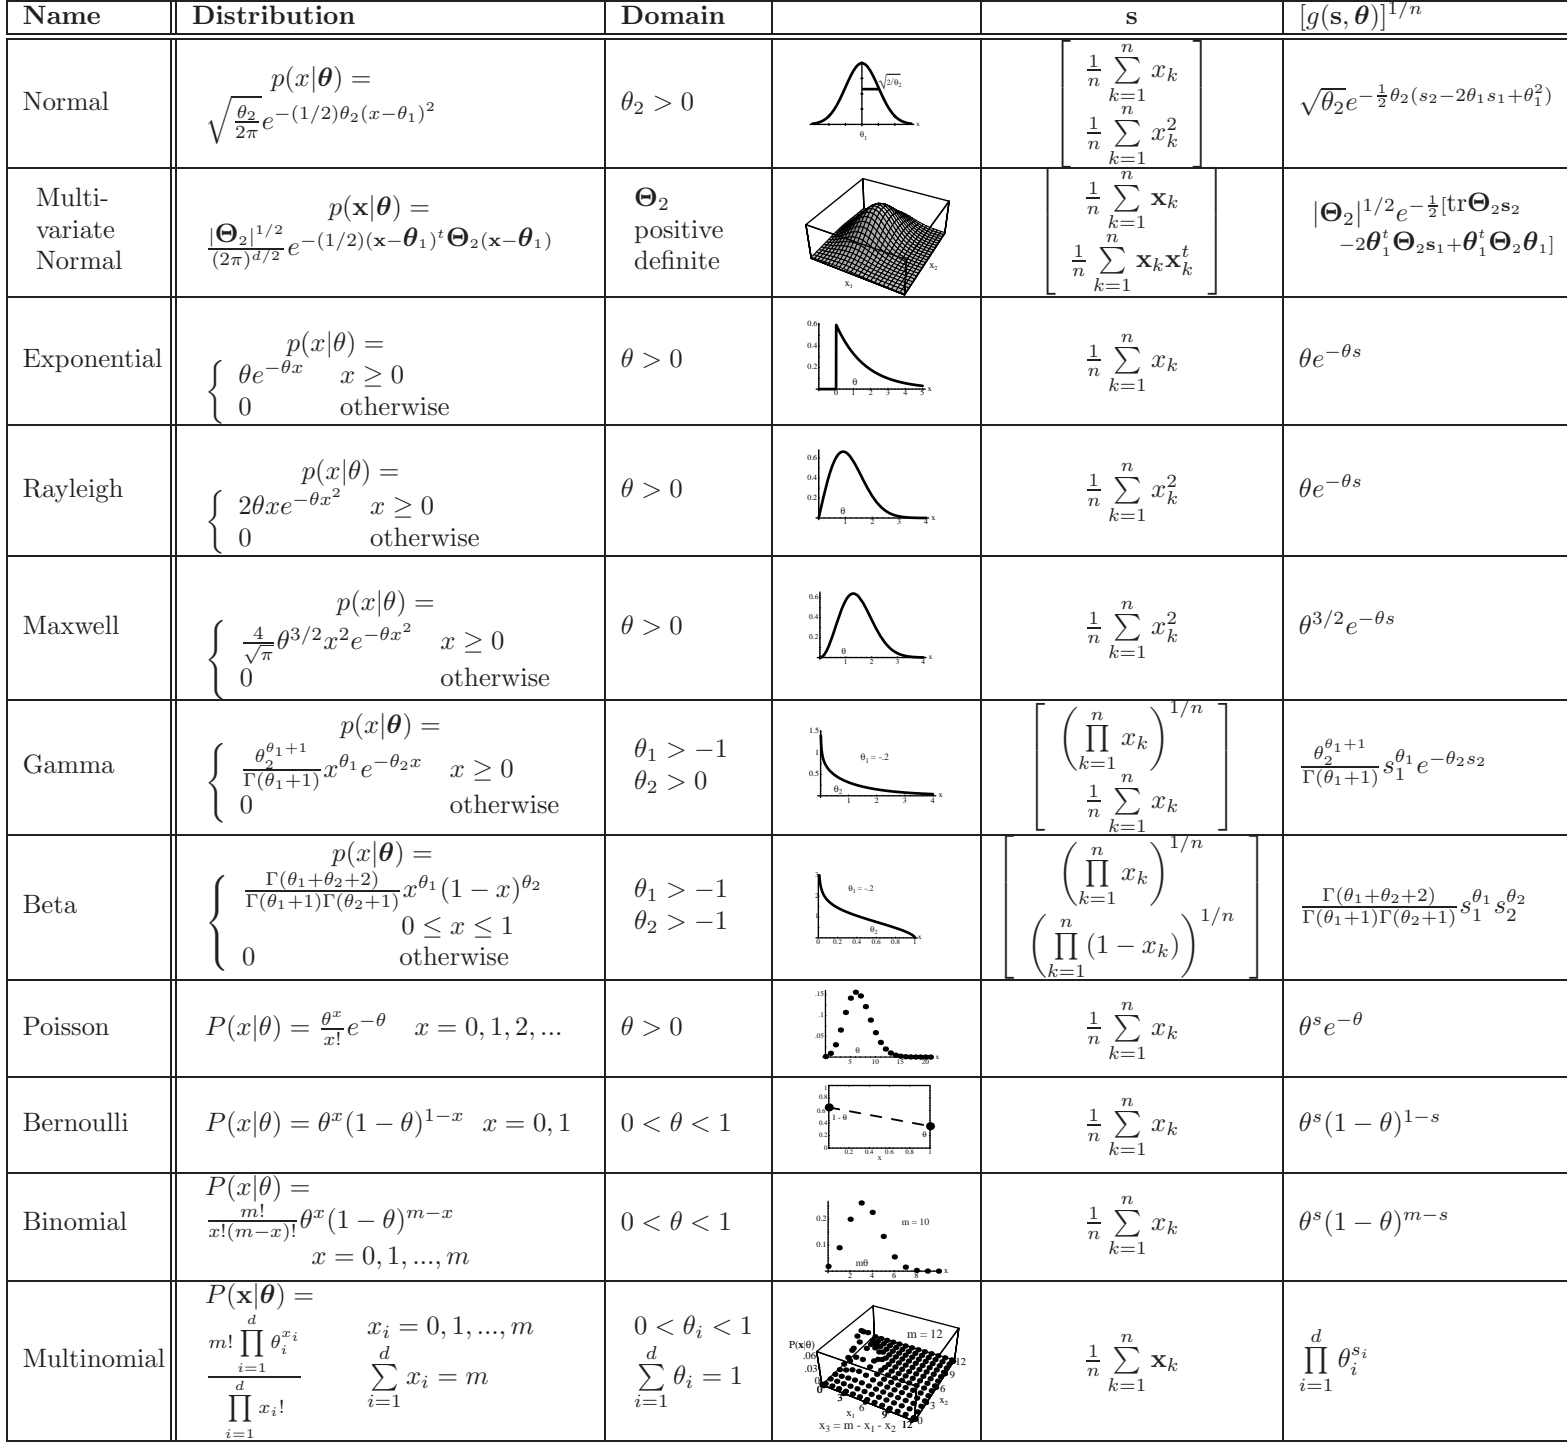 Name Distribution Domain s [g(s, θ)]^{1/n}
Normal
p(x|θ) =
√(θ₂/2π) e^{−(1/2)θ₂(x−θ₁)²}
θ₂ > 0
√(2/θ₂)
x
θ₁
[ 1/n ∑_{k=1}^{n} x_k
1/n ∑_{k=1}^{n} x_k² ]
√θ₂ e^{−½θ₂(s₂−2θ₁s₁+θ₁²)}
Multi-
variate
Normal
p(x|θ) =
|Θ₂|^{1/2}/(2π)^{d/2} e^{−(1/2)(x−θ₁)^tΘ₂(x−θ₁)}
Θ₂
positive
definite
x₂
x₁
[ 1/n ∑_{k=1}^{n} x_k
1/n ∑_{k=1}^{n} x_k x_k^t ]
|Θ₂|^{1/2} e^{−½[trΘ₂s₂
−2θ₁^tΘ₂s₁+θ₁^tΘ₂θ₁]}
Exponential
p(x|θ) =
{ θe^{−θx} x ≥ 0
0 otherwise
θ > 0
0.6
0.4
0.2
θ
0 1 2 3 4 5 x
1/n ∑_{k=1}^{n} x_k
θe^{−θs}
Rayleigh
p(x|θ) =
{ 2θxe^{−θx²} x ≥ 0
0 otherwise
θ > 0
0.6
0.4
0.2
θ
1 2 3 4 x
1/n ∑_{k=1}^{n} x_k²
θe^{−θs}
Maxwell
p(x|θ) =
{ 4/√π θ^{3/2}x²e^{−θx²} x ≥ 0
0 otherwise
θ > 0
0.6
0.4
0.2
θ
1 2 3 4 x
1/n ∑_{k=1}^{n} x_k²
θ^{3/2}e^{−θs}
Gamma
p(x|θ) =
{ θ₂^{θ₁+1}/Γ(θ₁+1) x^{θ₁}e^{−θ₂x} x ≥ 0
0 otherwise
θ₁ > −1
θ₂ > 0
1.5
1
0.5
θ₁ = -.2
θ₂
1 2 3 4 x
[ (∏_{k=1}^{n} x_k)^{1/n}
1/n ∑_{k=1}^{n} x_k ]
θ₂^{θ₁+1}/Γ(θ₁+1) s₁^{θ₁}e^{−θ₂s₂}
Beta
p(x|θ) =
{ Γ(θ₁+θ₂+2)/Γ(θ₁+1)Γ(θ₂+1) x^{θ₁}(1 − x)^{θ₂}
0 ≤ x ≤ 1
0 otherwise
θ₁ > −1
θ₂ > −1
3
2
1
θ₁ = -.2
θ₂
0 0.2 0.4 0.6 0.8 1 x
[ (∏_{k=1}^{n} x_k)^{1/n}
(∏_{k=1}^{n} (1 − x_k))^{1/n} ]
Γ(θ₁+θ₂+2)/Γ(θ₁+1)Γ(θ₂+1) s₁^{θ₁}s₂^{θ₂}
Poisson
P(x|θ) = θ^x/x! e^{−θ} x = 0, 1, 2, ...
θ > 0
.15
.1
.05
θ
5 10 15 20 x
1/n ∑_{k=1}^{n} x_k
θ^s e^{−θ}
Bernoulli
P(x|θ) = θ^x(1 − θ)^{1−x} x = 0, 1
0 < θ < 1
1
0.8
0.6
0.4
0.2
0
1 - θ
θ
0.2 0.4 0.6 0.8 1
x
1/n ∑_{k=1}^{n} x_k
θ^s(1 − θ)^{1−s}
Binomial
P(x|θ) =
m!/x!(m−x)! θ^x(1 − θ)^{m−x}
x = 0, 1, ..., m
0 < θ < 1
0.2
0.1
m = 10
mθ
2 4 6 8 x
1/n ∑_{k=1}^{n} x_k
θ^s(1 − θ)^{m−s}
Multinomial
P(x|θ) =
m! ∏_{i=1}^{d} θ_i^{x_i} / ∏_{i=1}^{d} x_i!
x_i = 0, 1, ..., m
∑_{i=1}^{d} x_i = m
0 < θ_i < 1
∑_{i=1}^{d} θ_i = 1
P(x|θ)
.06
.03
0
m = 12
0 3 6 9 12
x₁
0 3 6 9 12
x₂
x₃ = m - x₁ - x₂
1/n ∑_{k=1}^{n} x_k
∏_{i=1}^{d} θ_i^{s_i}